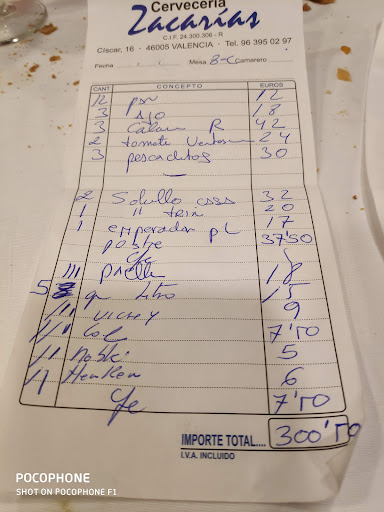 Cervecería
Zacarías
C.I.F. 24.300.306 - R
Císcar, 16 - 46005 VALENCIA - Tel. 96 395 02 97
Fecha Mesa 8-C Camarero
CANT CONCEPTO EUROS
12 pan 12
3 ajo 18
3 Calam R 42
2 tomate Ventresca 24
3 pescaditos 30
2 Solmillo 32
1 " 20
1 emperador pl 17
postre 37'50
cfe
III paella 18
5 litro 15
VICHY 9
Col 7'50
5
Heniken 6
cfe 7'50
IMPORTE TOTAL.... 300'50
I.V.A. INCLUIDO
POCOPHONE
SHOT ON POCOPHONE F1